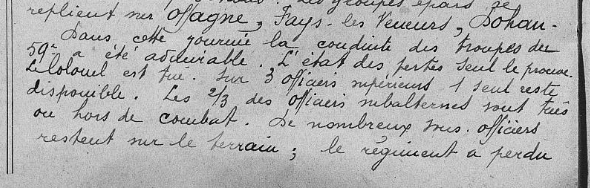 replient sur Offagne, Fays-les Veneurs, Dohan.
Dans cette journée la conduite des troupes du
59e a été admirable. L'état des pertes seul le prouve.
Le Colonel est tué. Sur 3 officiers supérieurs 1 seul reste
disponible. Les 2/3 des officiers subalternes sont tués
ou hors de combat. De nombreux sous-officiers
restent sur le terrain ; le régiment a perdu